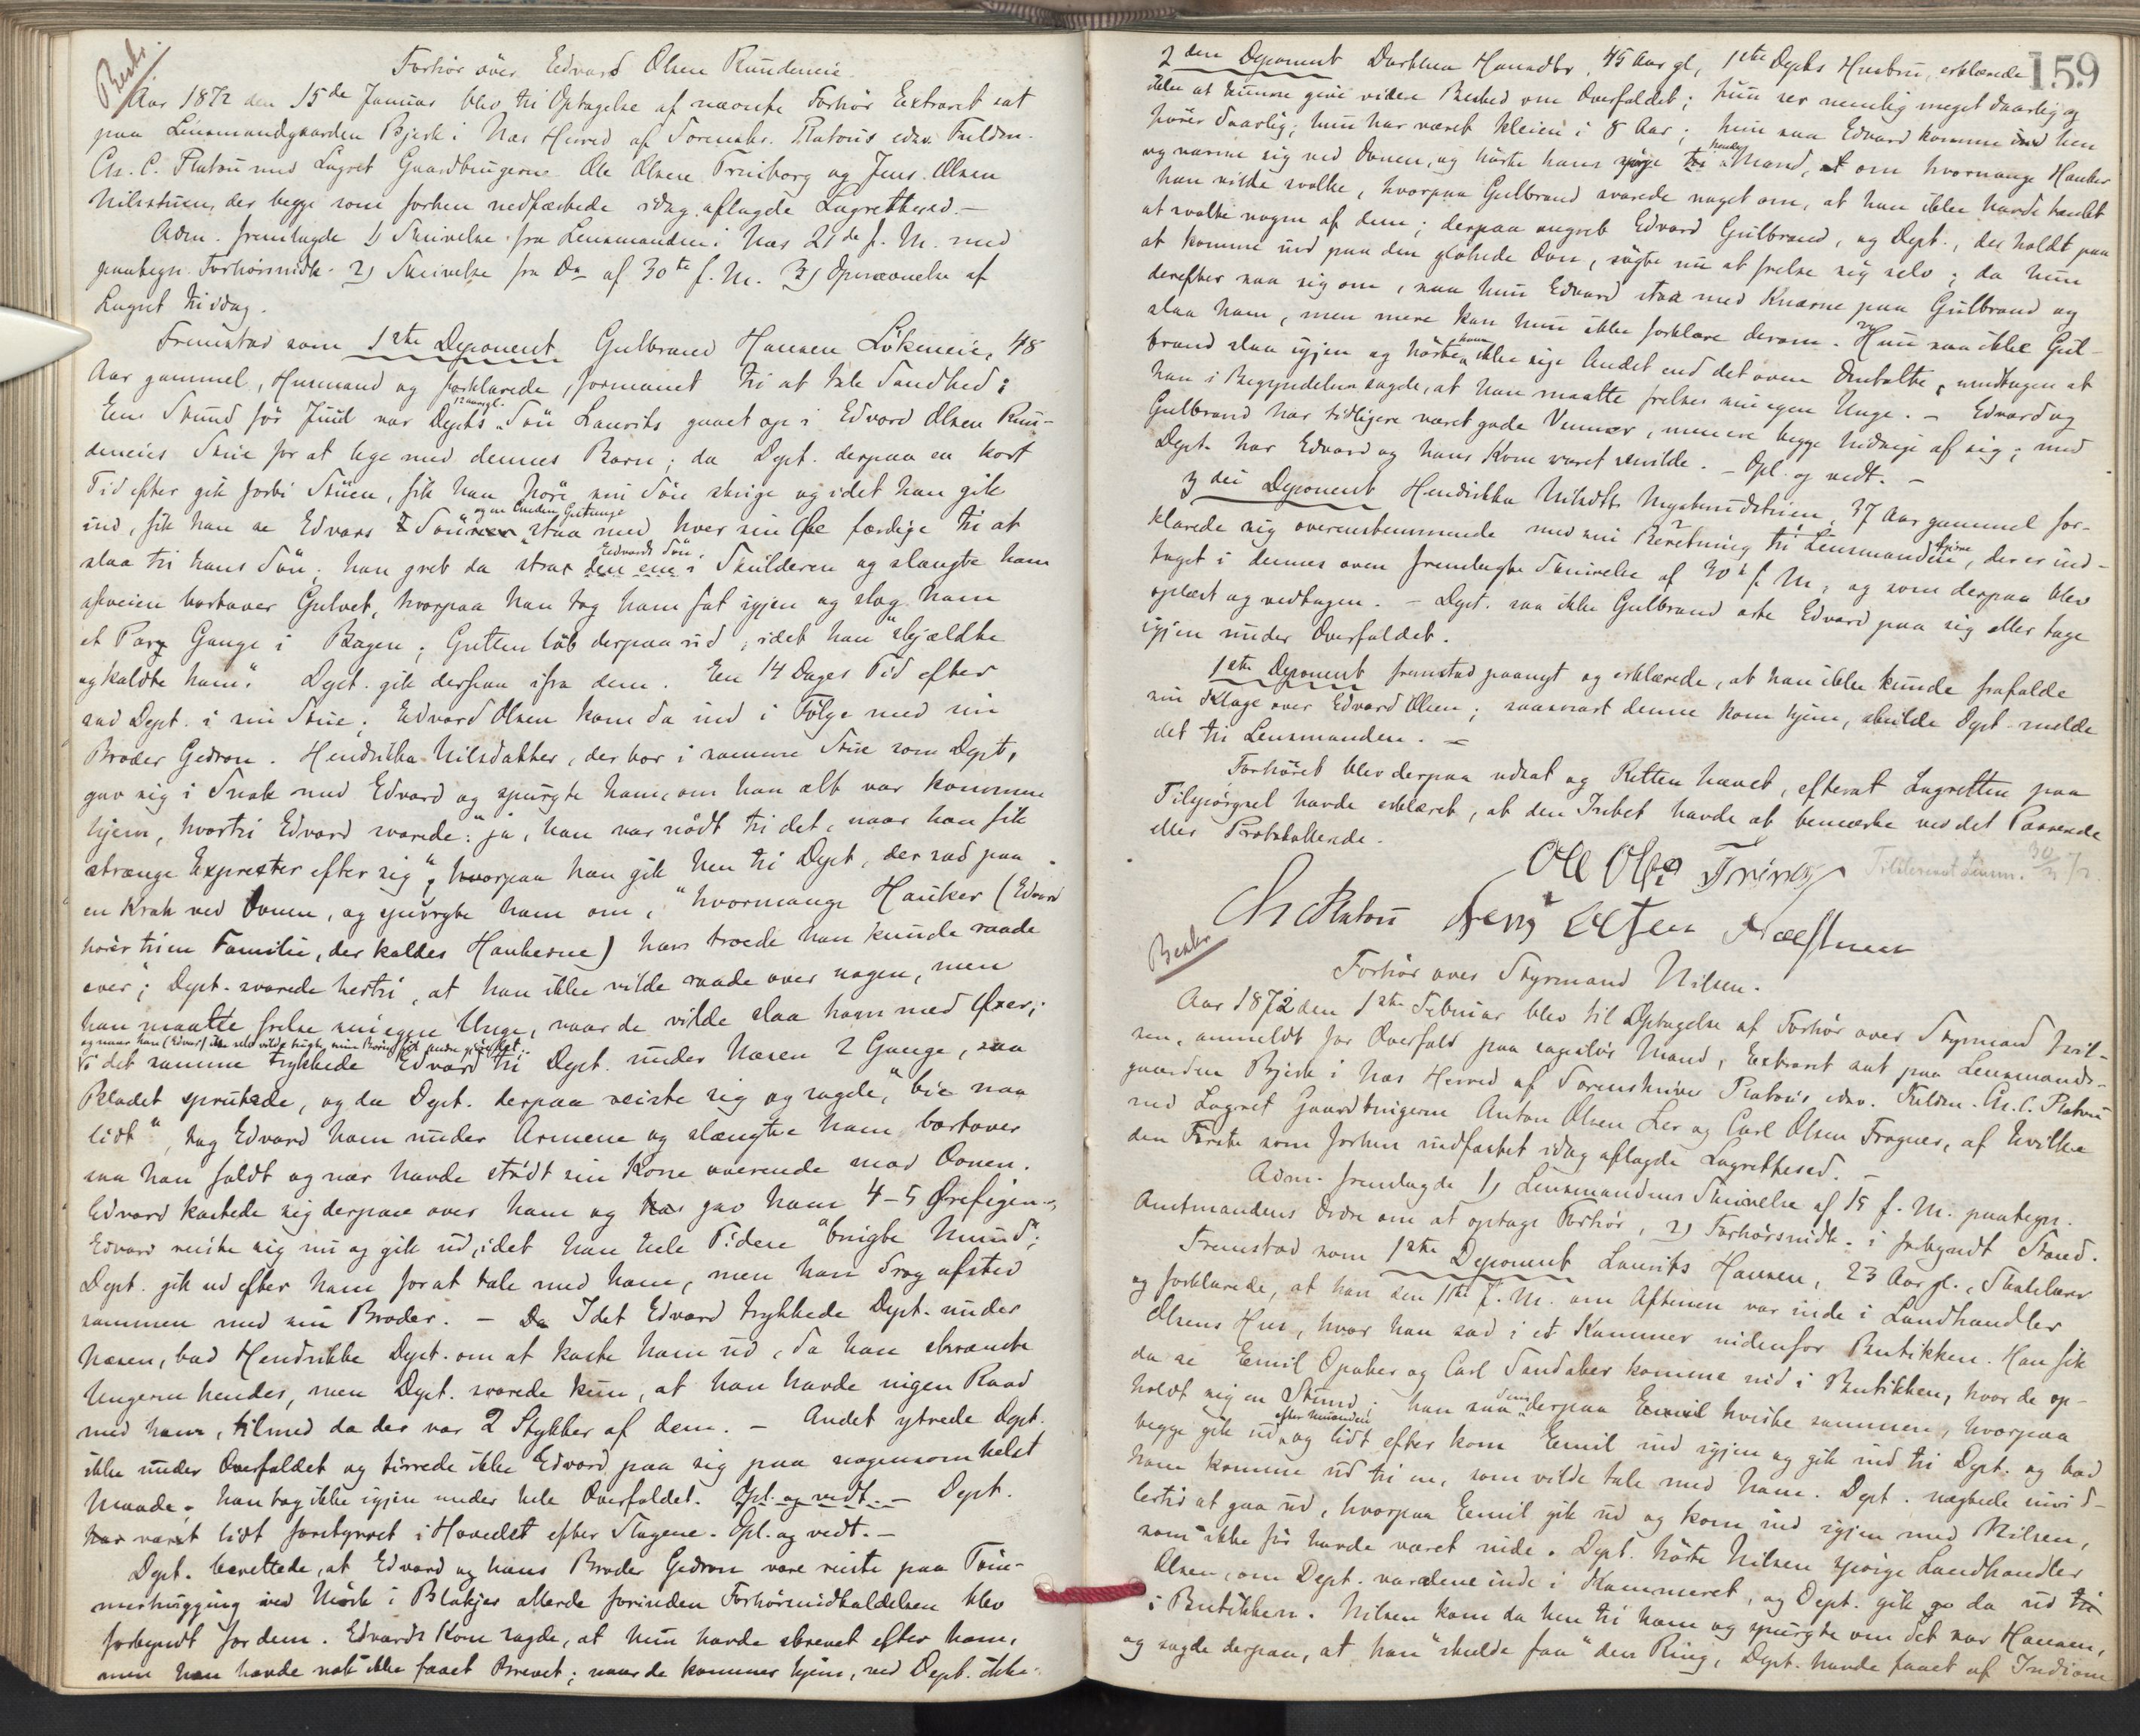 Besk.
Forhör över Edvard Olsen Rundeneie.
Aar 1872 den 15de Januar blev til Optagelse af nævnte Forhör Extraret sat
paa Lensmandgaarden Bjerk i Næs Herred af Sorenskr. Platous edsv. Fuldm.
Ch. C. Platou med Lagret Gaardbrugerne Ole Olsen Trinborg og Jens Olsen
Nilsstuen, der begge som forhen nedfæstede idag aflagde Lagretthesed. –
Adm. fremlagde 1) Skrivelse fra Lensmanden i Næs 21de f. M. med
paategn. Forhörsnidk. 2) Skrivelse fra Do af 30te f. M. 3) Opnævnelse af
Lagret til idag.
Fremstod som 1ste Deponent Gulbrand Hansen Lökeneie, 48
Aar gammel, Husmand og forklarede, formanet til at tale Sandhed:
En Stund för Juul var Depts 12 aargl. Sön Laurits gaaet op i Edvard Olsen Run-
deneies Stue for at lege med dennes Barn; da Dept. derpaa en kort
Tid efter gik forbi Stuen, fik han höre sin Sön skrige og idet han gik
ind, fik han se Edvards Sön og en anden Gutunge staa med hver sin Öxe færdige til at
slaa til hans Sön; han greb da strax den ene Edvards Sön i Skulderen og slængte ham
afveien bortover Gulvet, hvorpaa han tog ham fat igjen og slog ham
et Par Gange i Bagen; Gutten löb derpaa ud, idet han "skjældte
og kaldte ham". Dept. gik derpaa ifra dem. En 14 Dages Tid efter
sad Dept. i sin Stue; Edvard Olsen kom da ind i Fölge med sin
Broder Gedron. Hendrikka Nilsdatter, der bor i samme Stue som Dept,
gav sig i Snak med Edvard og spurgte ham, om han alt var kommen
hjem, hvortil Edvard svarede: "ja, han var nödt til det, naar han fik
strænge Expresser efter sig", hvorpaa han gik hen til Dept, der sad paa
en Krak ved Ovnen, og spurgte ham om, "hvormange Hauker (Edvard
hörer til en Familie, der kaldes Haukerne) han troede han kunde raade
over"; Dept. svarede hertil, at han ikke vilde raade over nogen, men
han maatte frelse sin egen Unge, naar de vilde slaa ham med Öxer;
i det samme trykkede Edvard til Dept. under Næsen 2 Gange, saa
Blodet sprutede, og da Dept. derpaa reiste sig og sagde, "bie naa
lidt", tog Edvard ham under Armene og slængte ham bortover
saa han faldt og nær havde stödt sin Kone overende mod Ovnen.
Edvard kastede sig derpaa over ham og gav ham 4–5 Örefigen;
Edvard reiste sig nu og gik ud, idet han hele Tiden "brugte Mund";
Dept. gik ud efter ham for at tale med ham, men han drog afsted
sammen med sin Broder. – Da Idet Edvard trykkede Dept. under
Næsen, bad Hendrikke Dept. om at kaste ham ud, da han skræmte
Ungerne hendes, men Dept. svarede kun, at han havde ingen Raad
med ham, tilmed da der var 2 Stykker af dem. – Andet ytrede Dept.
ikke under Overfaldet og tirrede ikke Edvard paa sig paa nogensomhelst
Maade; han tog ikke igjen under hele Overfaldet. Opl. og vedt. – Dept.
har været lidt forstyrret i Hovedet efter Slagene. Opl. og vedt. –
Dept. berettede, at Edvard og hans Broder Gedron vare reiste paa Töm-
merhugging ved Mörk i Blakjer allerede forinden Forhörsnidkaldelsen blev
forkyndt for dem. Edvards Kone sagde, at hun havde skrevet efter ham,
men han havde nok ikke faaet Brevet; naar de kommer hjem, ved Dept. ikke.
159
2den Deponent Dorthea Hansdtr, 45 Aar gl, 1ste Depts Hustru, erklærede
ikke at kunne give videre Besked om Overfaldet; hun ser nemlig meget daarlig og
hörer daarlig; hun har været kleien i 8 Aar; hun saa Edvard komme ind hen
og varme sig ved Ovnen, og hörte ham spörge hendes Mand, om hvormange Hauker
han vilde svolke, hvorpaa Gulbrand svarede noget om, at han ikke havde tænkt
at svolke nogen af dem; derpaa angreb Edvard Gulbrand, og Dept., der holdt paa
at komme ind paa den glohede Ovn, sögte nu at frelse sig selv; da hun
derefter saa sig om, saa hun Edvard staa med Knærne paa Gulbrand og
slaa ham, men mere kan hun ikke forklare derom. Hun saa ikke Gul-
brand slaa igjen og hörte ham ikke sige Andet end det oven Omtalte, undtagen at
han i Begyndelsen sagde, at han maatte frelse sin egen Unge. – Edvard og
Gulbrand har tidligere været gode Venner, men ere begge hidsige af sig; med
Dept. har Edvard og hans Kone været uvilde. – Opl. og vedt. –
3die Deponent Hendrikka Nilsdtr Mystmudstuen, 37 Aar gammel for-
klarede sig overensstemmende med sin Beretning til Lensmanden, der er ind-
taget i dennes oven fremlagte Skrivelse af 30te f. M., og som derpaa blev
oplæst og vedtagen. – Dept. saa ikke Gulbrand erte Edvard paa sig eller tage
igjen under Overfaldet.
1ste Deponent fremstod paanyt og erklærede, at han ikke kunde frafalde
sin Klage over Edvard Olsen; saasnart denne kom hjem, skulde Dept. melde
det til Lensmanden. –
Forhöret blev derpaa udsat og Retten hævet, efterat Lagretten paa
Tilspörgsel havde erklæret, at den Intet havde at bemærke ved det Passerede
eller Protokollerede.
Ole Olsen Trinborg
Ch Platou Jens Olsen
Besk.
Forhör over Styrmand Nilsen.
Aar 1872 den 1ste Februar blev til Optagelse af Forhör over Styrmand Nil-
sen, anmeldt for Overfald paa sagslös Mand, Extraret sat paa Lensmands-
gaarden Bjerk i Næs Herred af Sorenskriver Platous edsv. Fuldm. Ch. C. Platou
med Lagret Gaardbrugerne Anton Olsen Ler og Carl Olsen Frogner, af hvilke
den Förste som forhen nedfæstet idag aflagde Lagrettesed. –
Adm. fremlagde 1) Lensmandens Skrivelse af 15 f. M. paategn.
Amtmandens Ordre om at optage Forhör, 2) Forhörsnidk. i forkyndt Stand.
Fremstod som 1ste Deponent Laurits Hansen, 23 Aar gl., Skolelærer
og forklarede, at han den 11te f. M. om Aftenen var inde i Landhandler
Olsens Hus, hvor han sad i et Kammer udenfor Butikken. Han fik
da se Emil Opaker og Carl Sandaker komme ind i Butikken, hvor de op-
holdt sig en Stund; han saa dem derpaa hviske sammen, hvorpaa
begge gik ud efter hinanden og lidt efter kom Emil ind igjen og gik ind til Dept. og bad
ham komme ud til en, som vilde tale med ham. Dept. nægtede imid-
lertid at gaa ud, hvorpaa Emil gik ud og kom ind igjen med Nilsen,
som ikke för havde været inde. Dept. hörte Nilsen spörge Landhandler
Olsen, om Dept. var alene inde i Kammeret, og Dept. gik da ud
i Butikken. Nilsen kom da hen til ham og spurgte om det var Hansen,
og sagde derpaa, at han "skulde faa" den Ring, Dept. havde faaet af Indiane